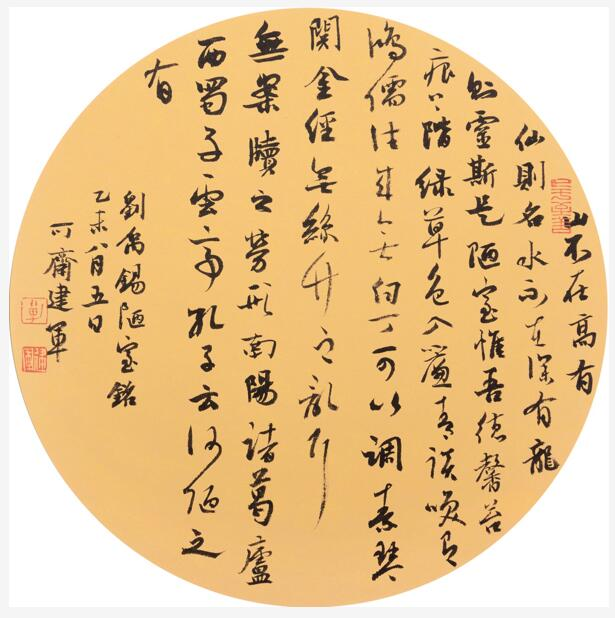 山不在高有
仙則名水不在深有龍
則靈斯是陋室惟吾德馨苔
痕上階綠草色入簾青談咲有
鴻儒往來無白丁可以調素琴
閱金經無絲竹之亂耳
無案牘之勞形南陽諸葛廬
西蜀子雲亭孔子云何陋之
有
劉禹錫陋室銘
乙未八月五日
可齋建軍